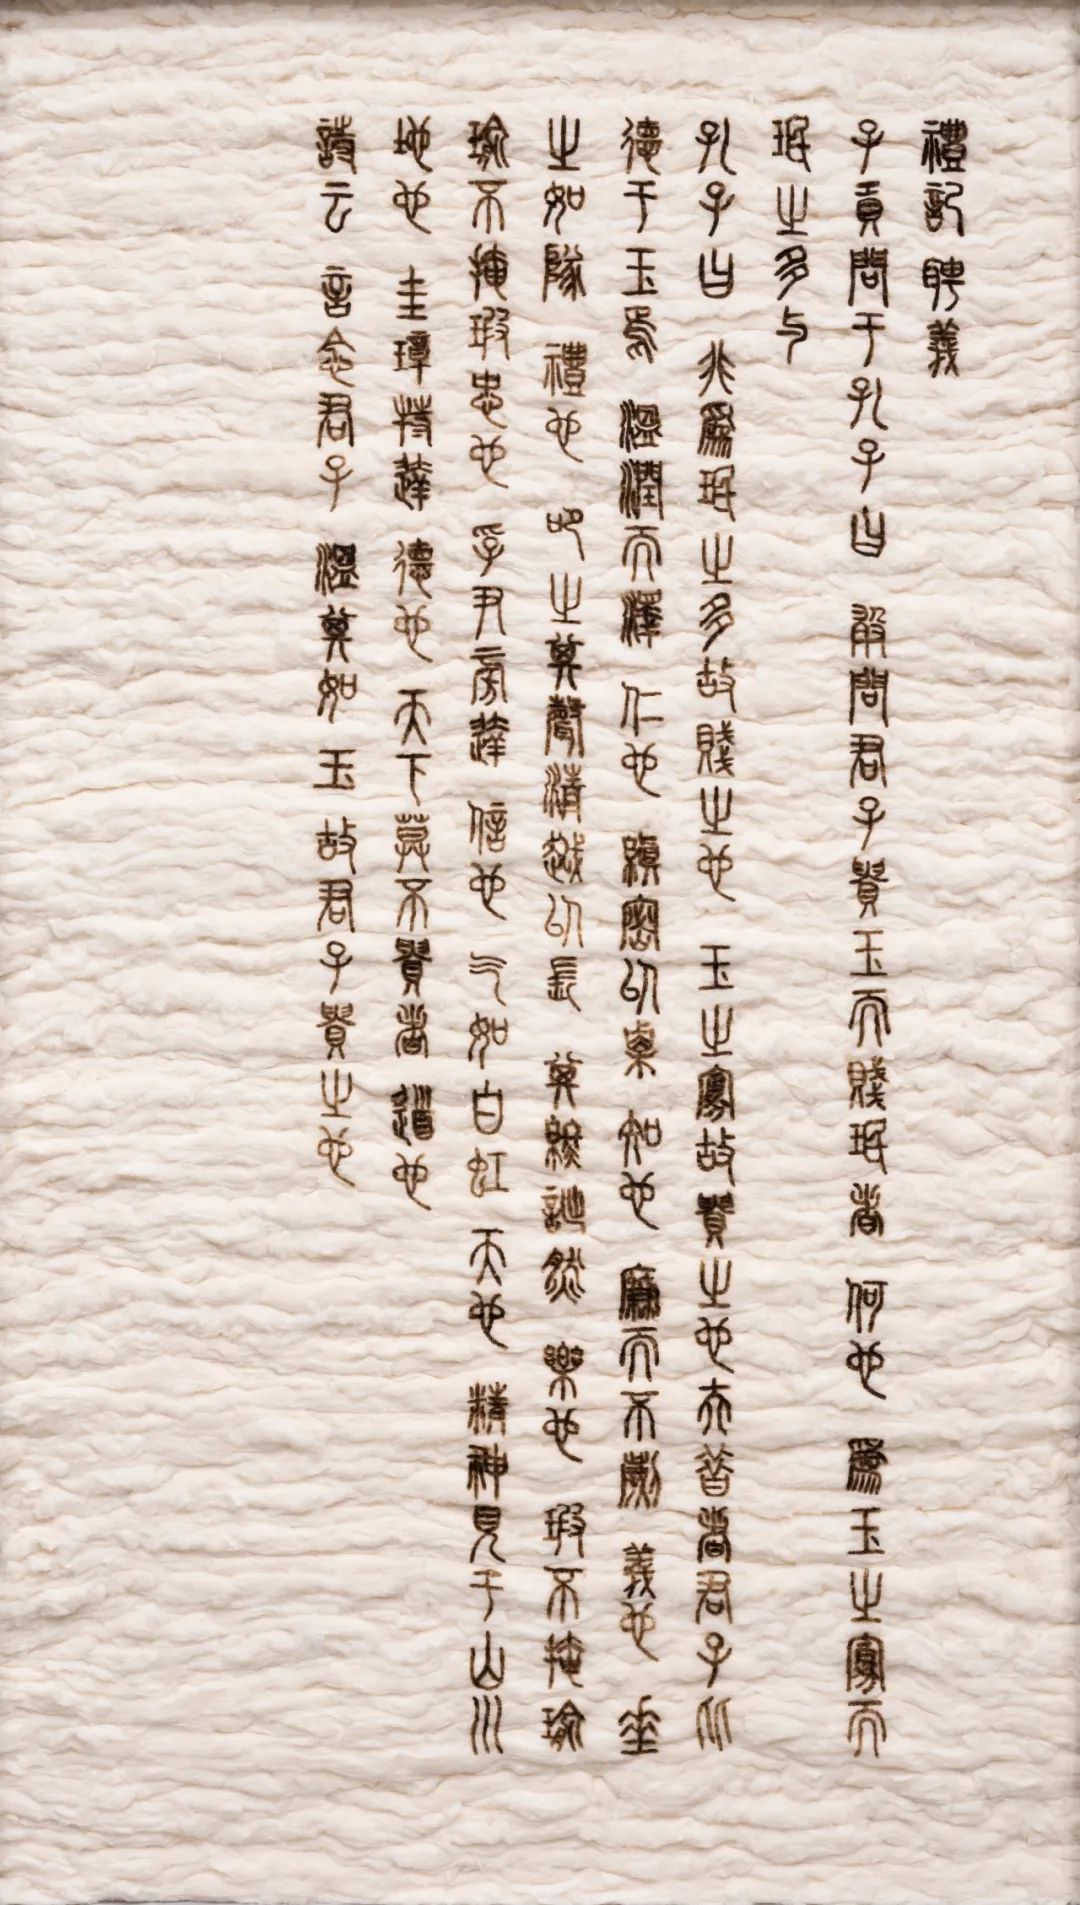 禮記 聘義
子貢問于孔子曰 敢問君子貴玉而賤珉者 何也 爲玉之寡而
珉之多与
孔子曰 非爲珉之多故賤之也 玉之寡故貴之也 夫昔者君子比
德于玉焉 溫潤而澤 仁也 縝密以栗 知也 廉而不劌 義也 垂
之如隊 禮也 叩之其聲清越以長 其終詘然 樂也 瑕不掩瑜
瑜不掩瑕 忠也 孚尹旁達 信也 气如白虹 天也 精神見于山川
地也 圭璋特達 德也 天下莫不貴者 道也
詩云 言念君子 溫其如玉 故君子貴之也